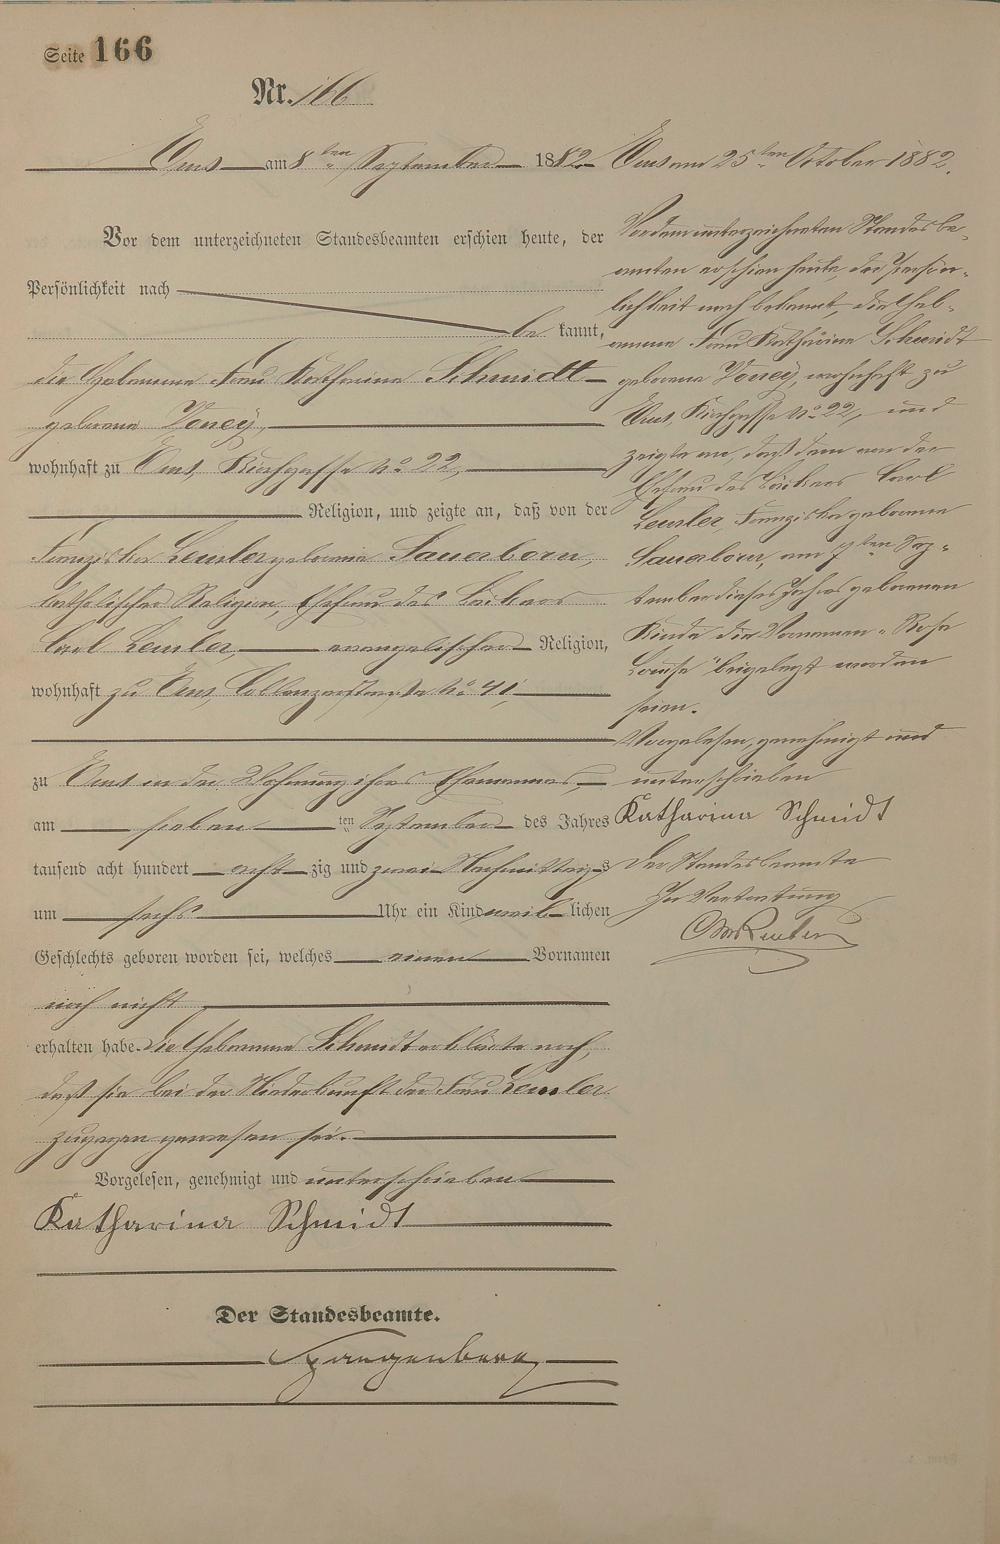 Seite 166
Nr. 166
Ems am 8ten September 1882
Vor dem unterzeichneten Standesbeamten erschien heute, der
Persönlichkeit nach
be kannt,
die Hebamme Frau Katharina Schmidt
geborene
wohnhaft zu Ems, Kirchgasse No 22,
Religion, und zeigte an, daß von der
Franziska Lemler geborene Sauerborn,
katholischer Religion, Ehefrau des Bäckers
Carl Lemler, evangelischer Religion,
wohnhaft zu Ems, Coblenzerstraße No 41,
zu Ems in der Wohnung ihres Ehemannes,
am sieben ten September des Jahres
tausend acht hundert acht zig und zwei Nachmittags
um sechs Uhr ein Kind weib lichen
Geschlechts geboren worden sei, welches einen Vornamen
noch nicht
erhalten habe. Die Hebamme Schmidt erklärte noch,
daß sie bei der Niederkunft der Frau Lemler
zugegen gewesen sei.
Vorgelesen, genehmigt und unterschrieben
Katharina Schmidt
Der Standesbeamte.
Spangenberg
Ems am 25ten October 1882.
Vor dem unterzeichneten Standesbe-
amten erschien heute, der Persön-
lichkeit nach bekannt, die Heb-
amme Frau Katharina Schmidt
geborene wohnhaft zu
Ems, Kirchgasse No 22, und
zeigte an, daß dem von der
Ehefrau des Bäckers Carl
Lemler, Franziska geborene
Sauerborn, am 7ten Sep-
tember dieses Jahres geborenen
Kinde die Vornamen „Rosa
Louise" beigelegt worden
seien.
Vorgelesen, genehmigt und
unterschrieben
Katharina Schmidt
Der Standesbeamte
In Vertretung